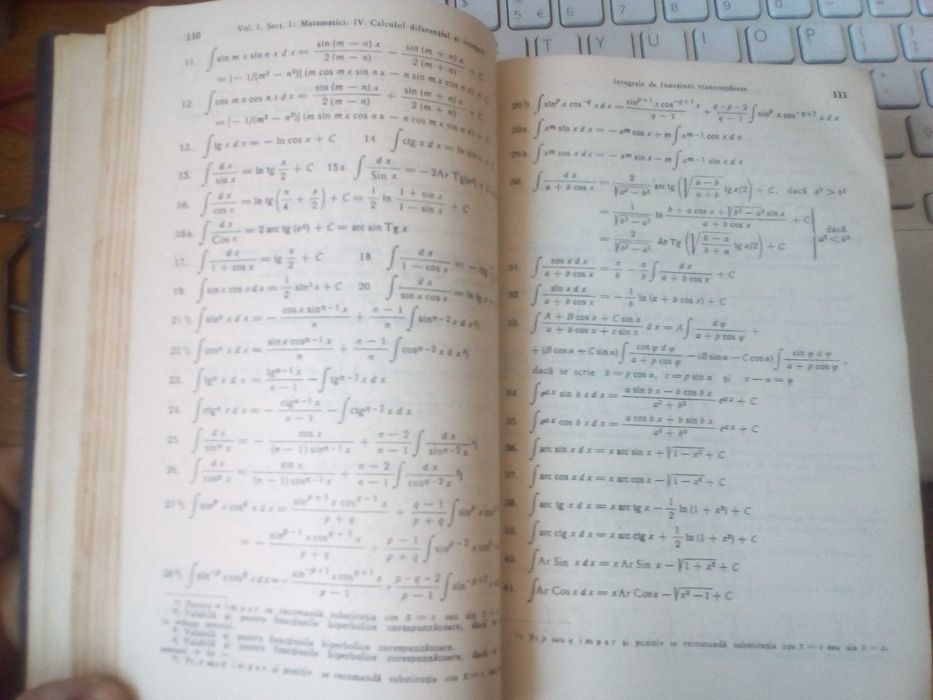 110 Vol. I. Sect. 1: Matematici. IV. Calculul diferențial și
11. ∫ sin m x sin n x d x = sin (m − n) x / 2 (m − n) − sin (m + n) x / 2 (m + n) + C
= [− 1/(m² − n²)] (m cos mx sin nx − n sin mx cos nx) + C
12. ∫ cos m x cos n x d x = sin (m − n) x / 2 (m − n) + sin (m + n) x / 2 (m + n) + C
13. ∫ tg x d x = − ln cos x + C 14. ∫ ctg x d x = ln sin x
15. ∫ d x / sin x = ln tg x/2 + C 15a. ∫ d x / Sin x = − 2Ar Tg
16. ∫ d x / cos x = ln tg (π/4 + x/2) + C = 1/2 ln 1 + sin x / 1 − sin x + C
16a. ∫ d x / Cos x = 2 arc tg (eˣ) + C = arc sin Tg x
17. ∫ d x / 1 + cos x = tg x/2 + C 18 ∫ d x / 1 − cos x = − ctg
19. ∫ sin x cos x d x = 1/2 sin² x + C 20 ∫ d x / sin x cos x = ln tg x
21. ∫ sinⁿ x d x = − cos x sinⁿ⁻¹ x / n + n − 1 / n ∫ sinⁿ⁻² x d x
22. ∫ cosⁿ x d x = sin x cosⁿ⁻¹ x / n + n − 1 / n ∫ cosⁿ⁻² x d x
23. ∫ tgⁿ x d x = tgⁿ⁻¹ x / n − 1 − ∫ tgⁿ⁻² x d x
24. ∫ ctgⁿ x d x = − ctgⁿ⁻¹ x / n − 1 − ∫ ctgⁿ⁻² x d x
25. ∫ d x / sinⁿ x = − cos x / (n − 1) sinⁿ⁻¹ x + n − 2 / n − 1 ∫ d x / sinⁿ⁻² x
26. ∫ d x / cosⁿ x = sin x / (n − 1) cosⁿ⁻¹ x + n − 2 / n − 1 ∫ d x / cosⁿ⁻² x
27. ∫ sinᵖ x cos^q x d x = sinᵖ⁺¹ x cos^(q−1) x / p + q + q − 1 / p + q ∫ sinᵖ x
= − sinᵖ⁻¹ x cos^(q+1) x / p + q + p − 1 / p + q ∫ sinᵖ⁻² x
28. ∫ sin⁻ᵖ x cos^q x d x = − sin⁻ᵖ⁺¹ x cos^(q+1) x / p − 1 + p − q − 2 / p − 1 ∫
impar se recomandă substituția cos X = z sau sin X =
Valabilă și pentru funcțiile hiperbolice corespunzătoare,
Valabilă și pentru funcțiile hiperbolice corespunzătoare.
Valabilă și pentru funcțiile hiperbolice corespunzătoare,
impar și pozitiv se recomandă substituția cos X = z
Integrale de funcțiuni transcendente 111
29. ∫ sinᵖ x cos^(−q) x d x = sinᵖ⁺¹ x cos^(−q+1) x / q − 1 + q − p − 2 / q − 1 ∫ sinᵖ x cos^(−q+2) x d x
29a. ∫ xᵐ sin x d x = − xᵐ cos x + m ∫ xᵐ⁻¹ cos x d x
29b. ∫ xᵐ cos x d x = − xᵐ sin x − m ∫ xᵐ⁻¹ sin x d x
30. ∫ d x / a + b cos x = 2 / √(a² − b²) arc tg (√(a − b / a + b) tg x/2) + C, dacă a² > b²
= 1 / √(b² − a²) ln b + a cos x + √(b² − a²) sin x / a + b cos x + C
= 2 / √(b² − a²) Ar Tg (√(b − a / b + a) tg x/2) + C dacă a² < b²
31. ∫ cos x d x / a + b cos x = x/b − a/b ∫ d x / a + b cos x + C
32. ∫ sin x d x / a + b cos x = − 1/b ln (a + b cos x) + C
33. ∫ A + B cos x + C sin x / a + b cos x + c sin x d x = A ∫ d φ / a + p cos φ +
+ (B cos α + C sin α) ∫ cos φ d φ / a + p cos φ − (B sin α − C cos α) ∫ sin φ d φ / a + p cos φ,
dacă se scrie b = p cos α, c = p sin α și x − α = φ
34. ∫ eᵃˣ sin b x d x = a sin b x − b cos b x / a² + b² eᵃˣ + C
35. ∫ eᵃˣ cos b x d x = a cos b x + b sin b x / a² + b² eᵃˣ + C
36. ∫ arc sin x d x = x arc sin x + √(1 − x²) + C
37. ∫ arc cos x d x = x arc cos x − √(1 − x²) + C
38. ∫ arc tg x d x = x arc tg x − 1/2 ln (1 + x²) + C
39. ∫ arc ctg x d x = x arc ctg x + 1/2 ln (1 + x²) + C
40. ∫ Ar Sin x d x = x Ar Sin x − √(1 + x²) + C
41. ∫ Ar Cos x d x = x Ar Cos x − √(x² − 1) + C
impar și pozitiv se recomandă substituția cos X = z sau sin X = z.
5 € 6 7 8 9
T Y U I O P